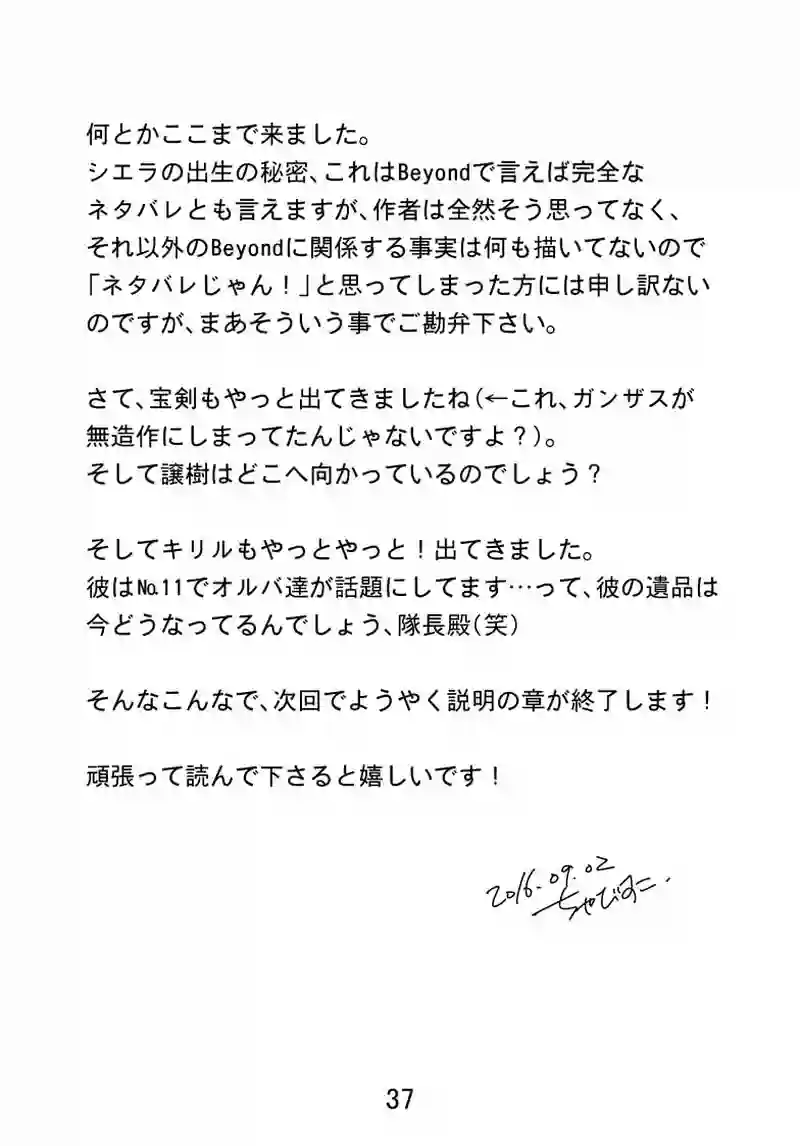 何とかここまで来ました。
シエラの出生の秘密、これはBeyondで言えば完全な
ネタバレとも言えますが、作者は全然そう思ってなく、
それ以外のBeyondに関係する事実は何も描いてないので
「ネタバレじゃん！」と思ってしまった方には申し訳ない
のですが、まあそういう事でご勘弁下さい。
さて、宝剣もやっと出てきましたね（←これ、ガンザスが
無造作にしまってたんじゃないですよ？）。
そして譲樹はどこへ向かっているのでしょう？
そしてキリルもやっとやっと！出てきました。
彼は№11でオルバ達が話題にしてます…って、彼の遺品は
今どうなってるんでしょう、隊長殿（笑）
そんなこんなで、次回でようやく説明の章が終了します！
頑張って読んで下さると嬉しいです！
2016.09.02
37